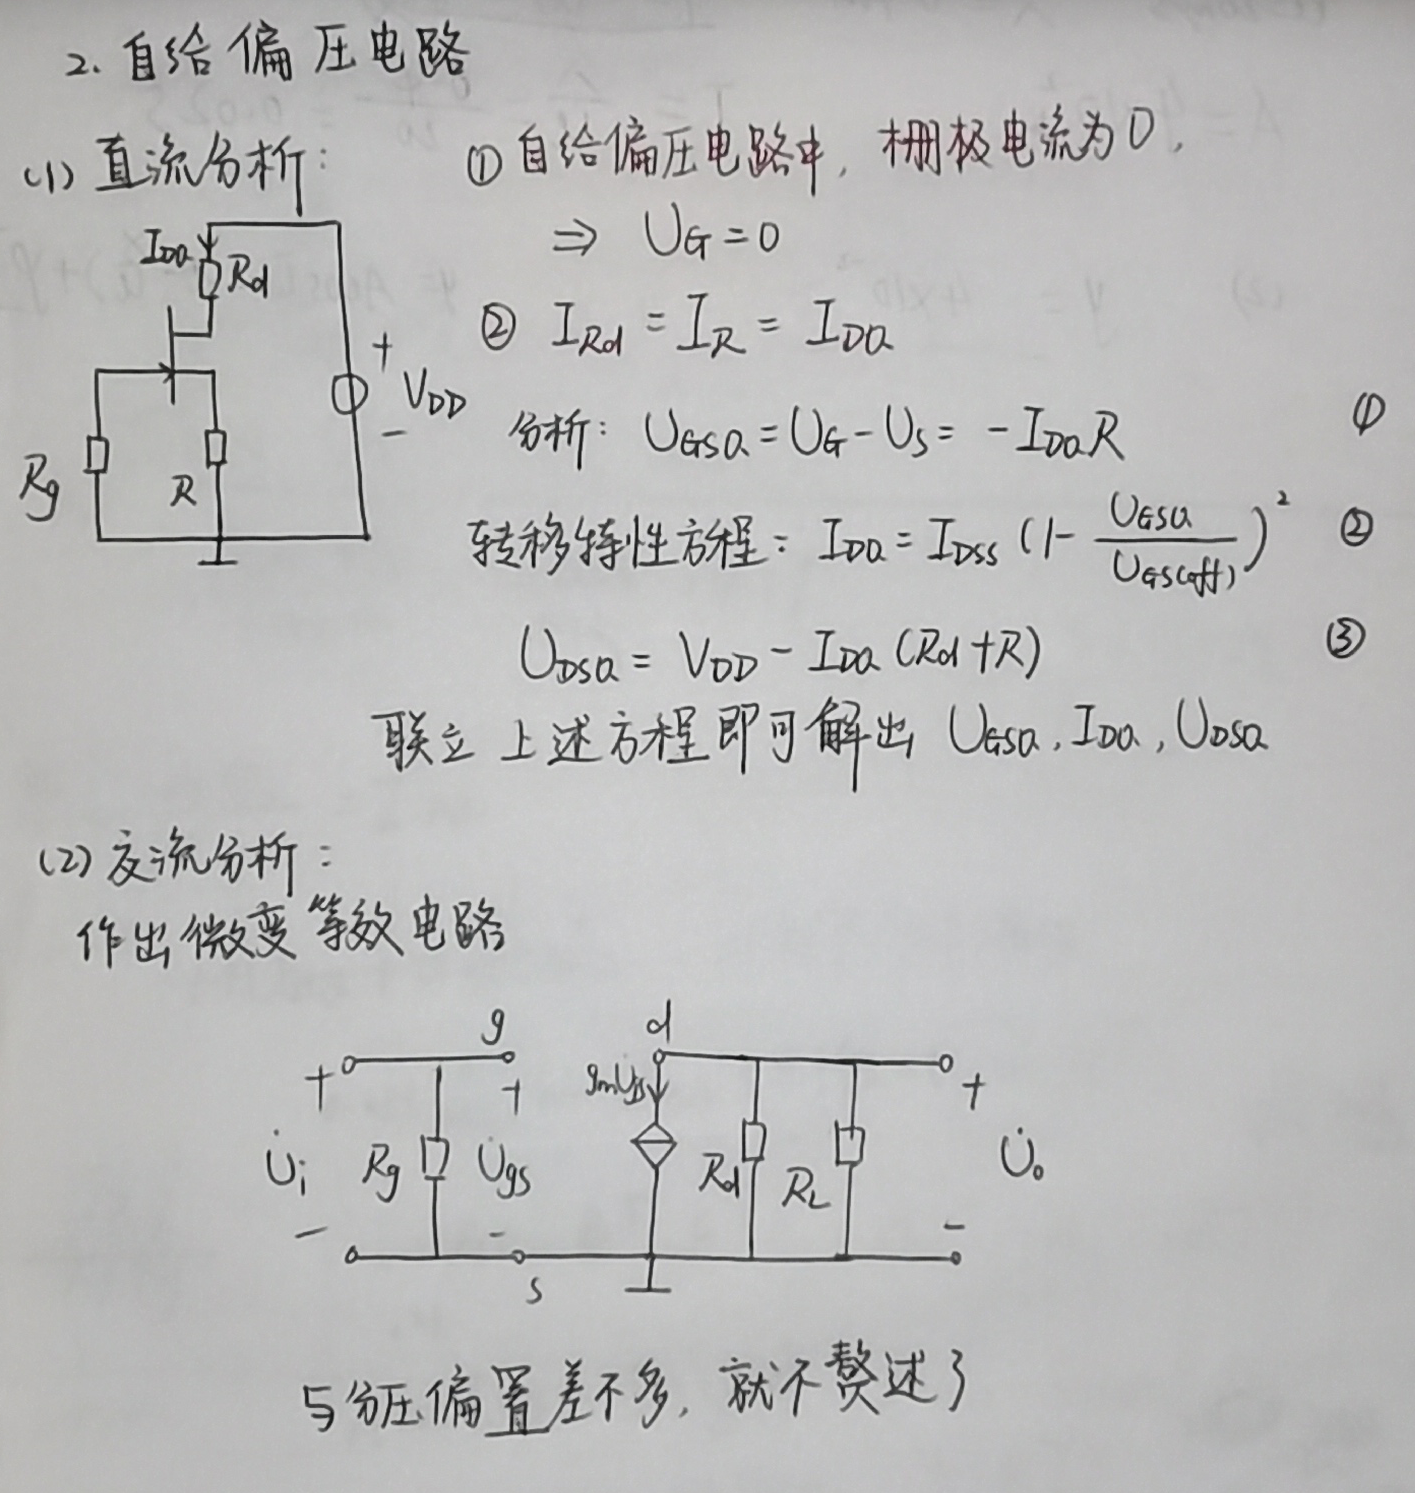 2. 自给偏压电路
(1) 直流分析: ① 自给偏压电路中, 栅极电流为0,
⇒ UG=0
IDQ Rd
② IRd = IR = IDQ
+ VDD -
分析: UGSQ = UG - US = - IDQ R ①
Rg R
转移特性方程: IDQ = IDSS (1 - UGSQ / UGS(off))² ②
UDSQ = VDD - IDQ (Rd + R) ③
联立上述方程即可解出 UGSQ, IDQ, UDSQ
(2) 交流分析:
作出微变等效电路
g d
+ + gmU̇gs +
U̇i Rg U̇gs Rd RL U̇o
- - -
s
与分压偏置差不多, 就不赘述了